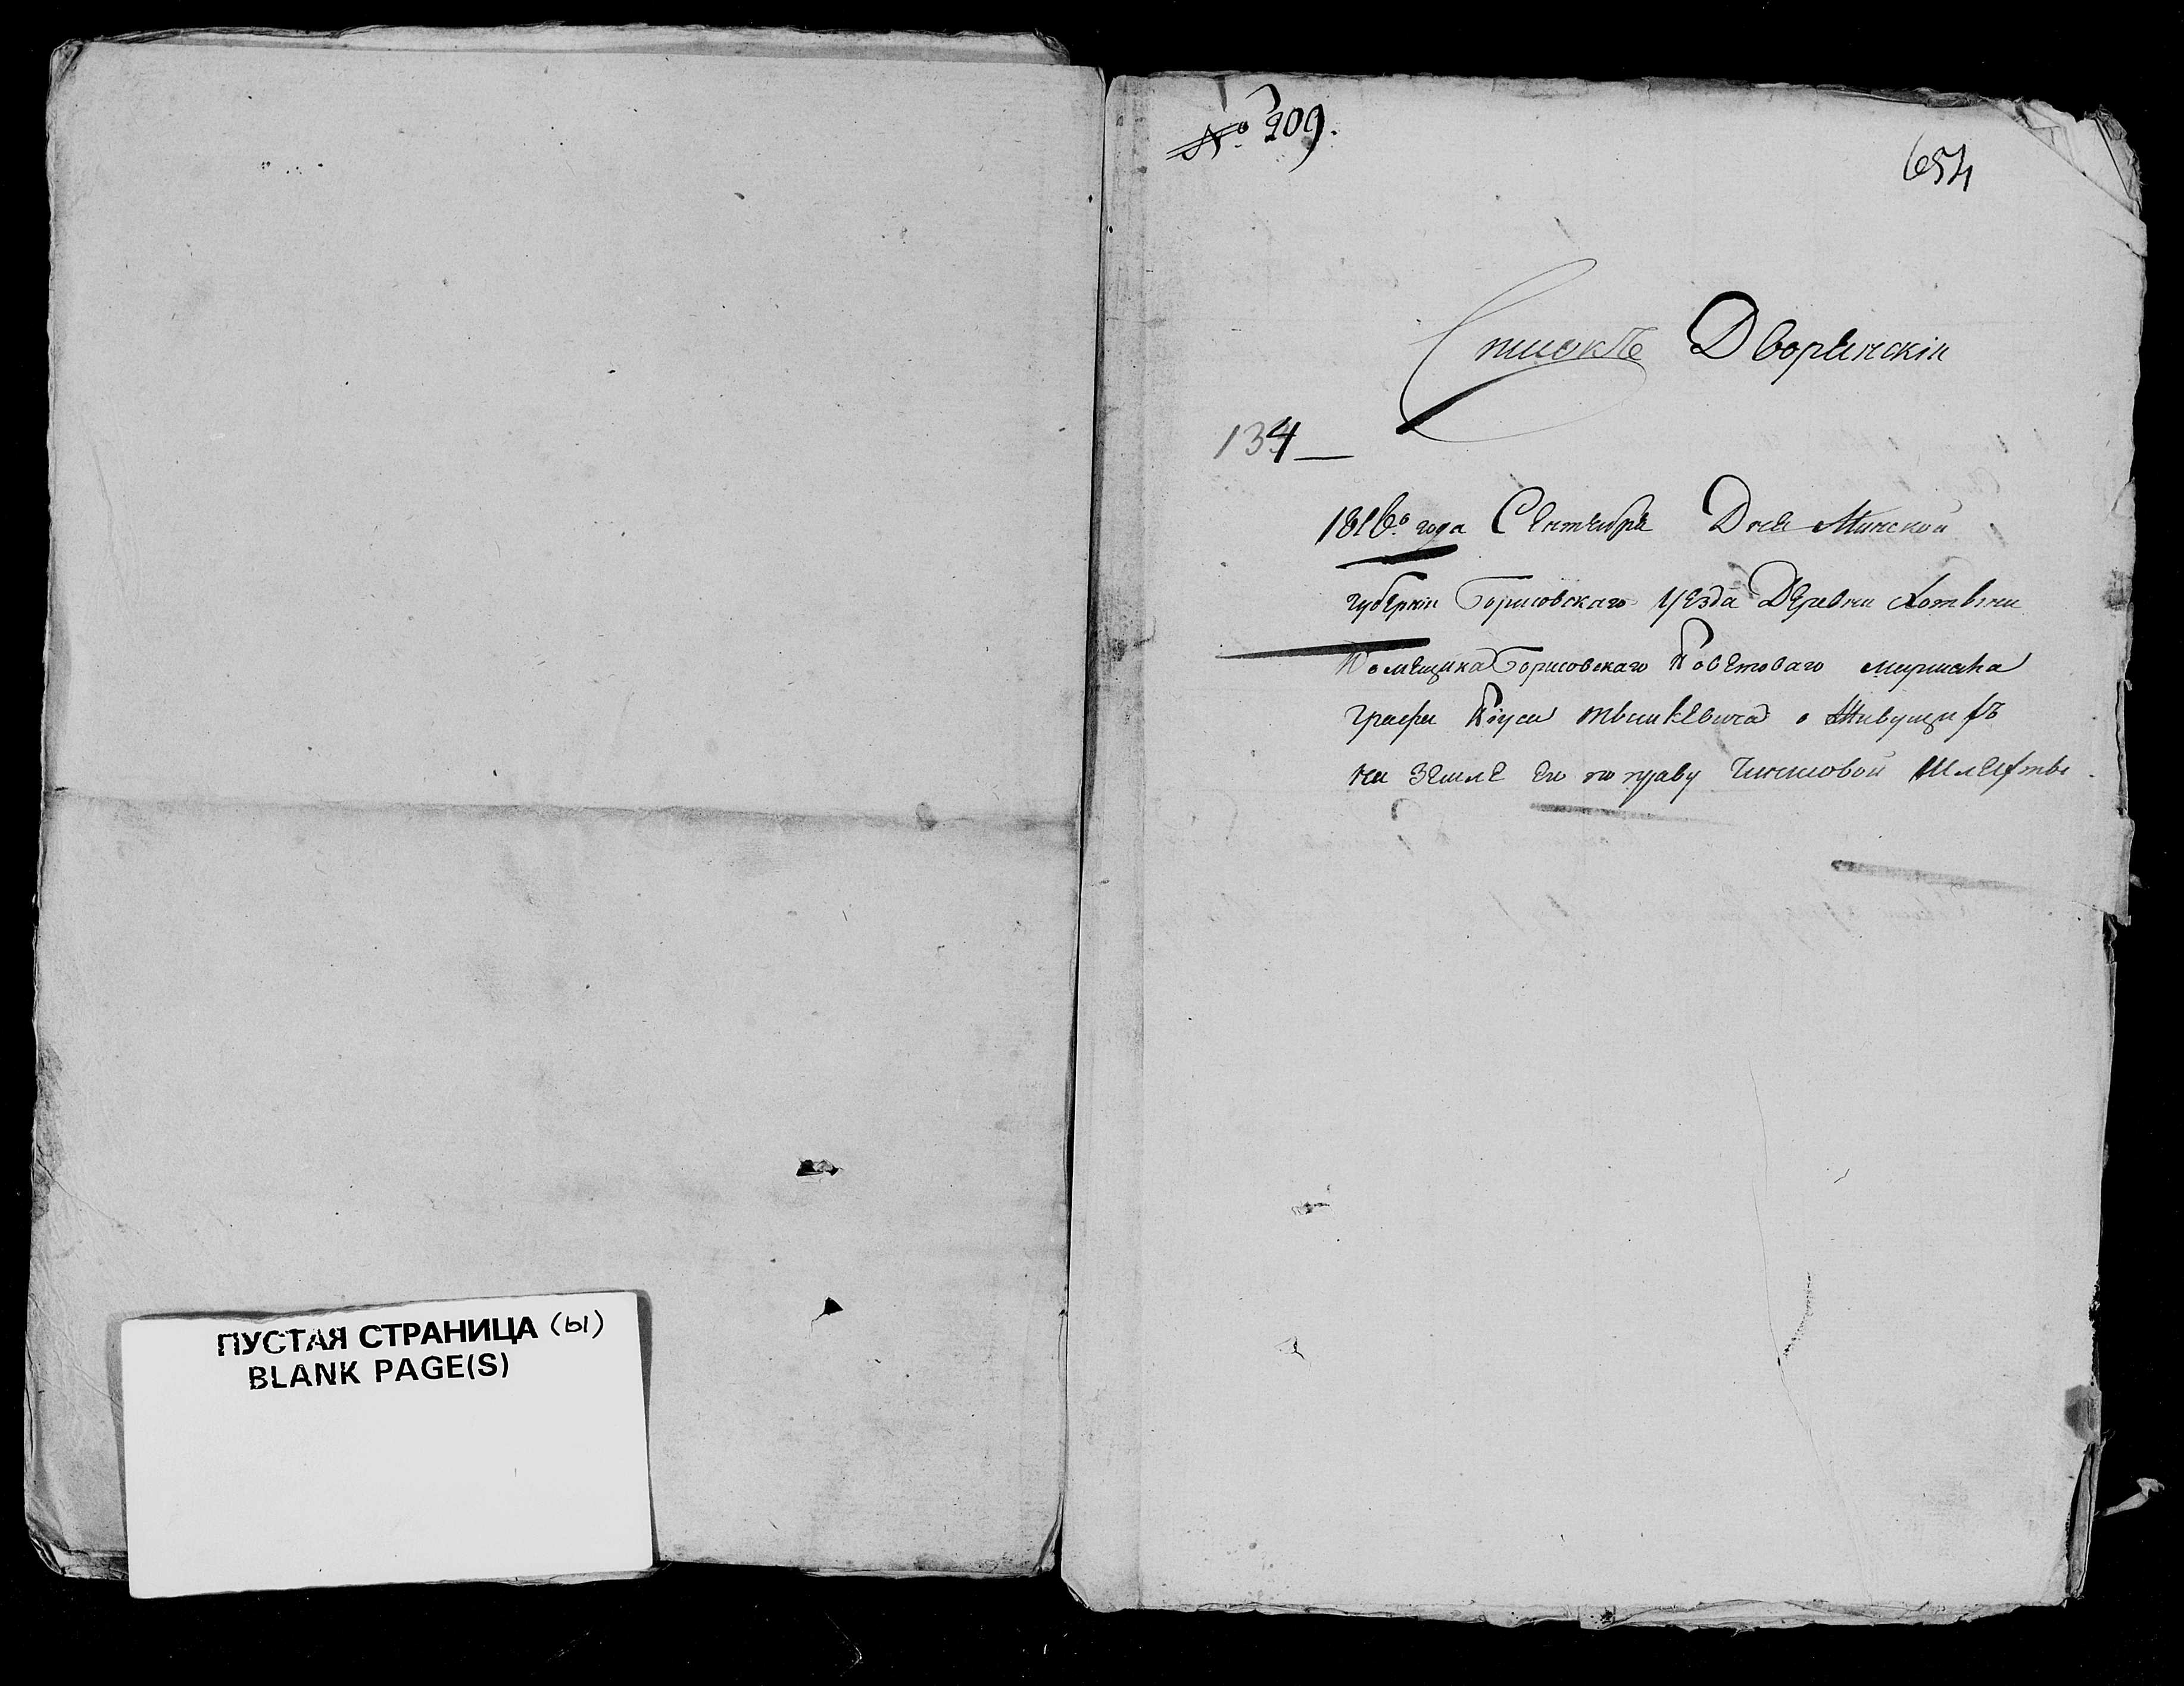 ПУСТАЯ СТРАНИЦА (ы)
BLANK PAGE(S)
№ 209.
654
Списокъ Дворянскіи
134
1816го года Сентября Дня Минской
губерніи Борисовскаго уезда Деревни Хотвини
Помещика Борисовскаго Поветоваго маршала
графа Піуса тышкевича о Живущихъ
на Земле Его по праву Чиншовой Шляхты.